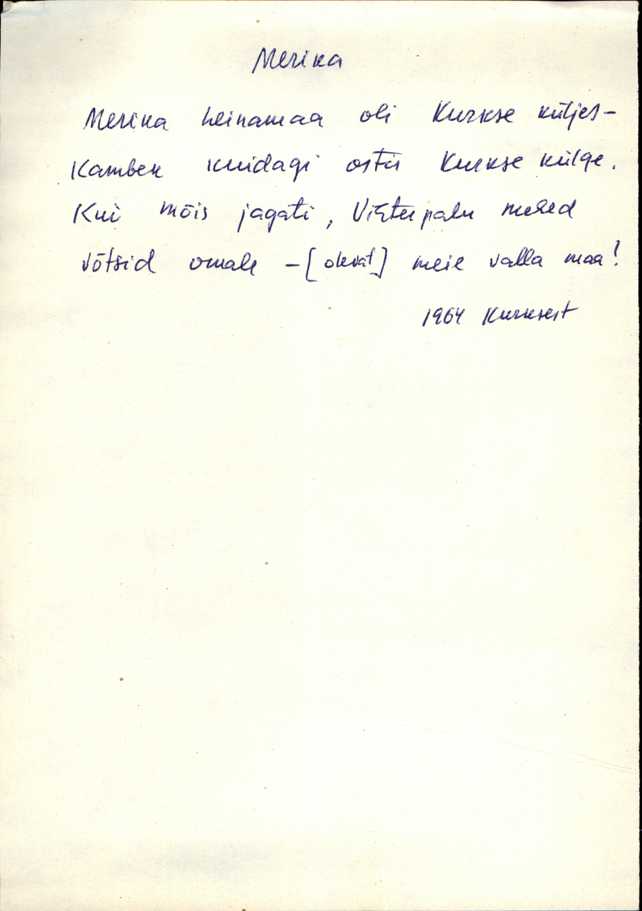 Merika
Merika heinamaa oli Kurkse küljes -
Kambek kuidagi ostis Kurkse külge.
Kui mõis jagati, Vihterpalu mehed
võtsid omale - [olevat] meie valla maa!
1964 Kurksest